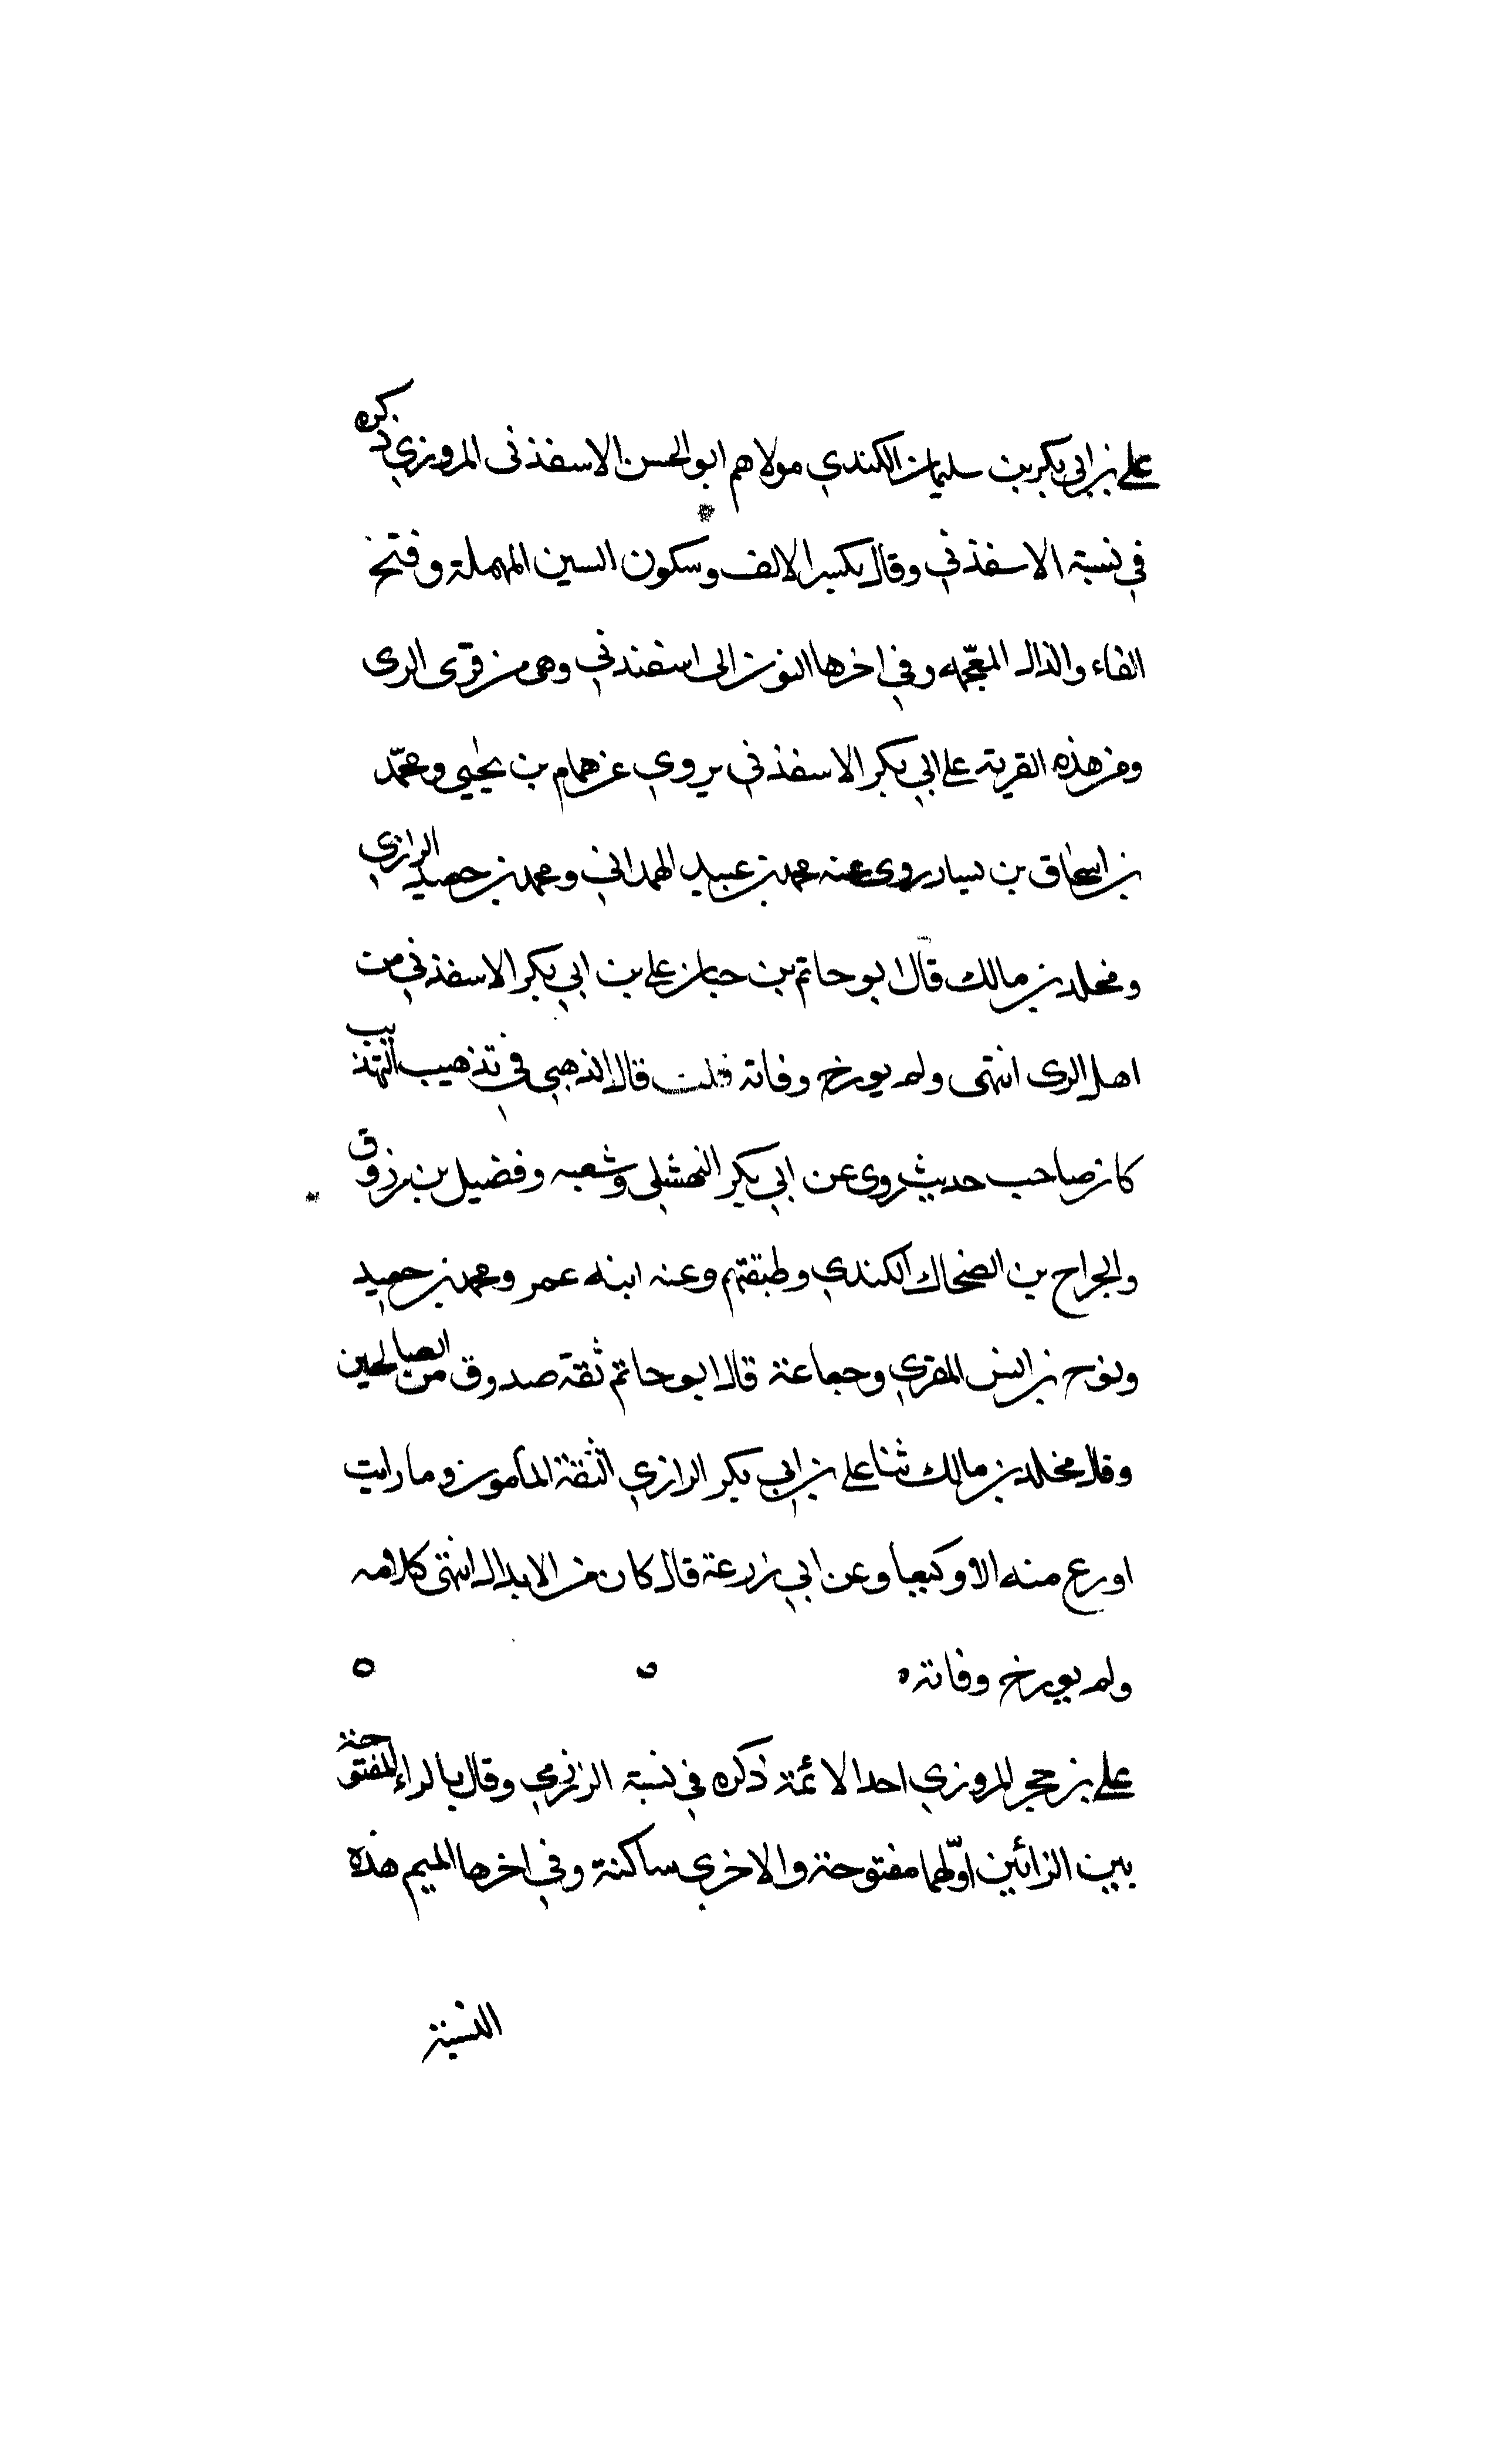 علي بن ابي بكر بن سليمان الكندي مولاهم ابو الحسن الاسفذني المروزي ذكره
في نسبة الاسفذني وقال بكسر الالف وسكون السين المهملة وفتح
الفاء والذال المعجمه وفي اخرها النون الى اسفندني وهي من قرى الرى
ومن هذه القرية على ابي بكر الاسفذني يروي عن همام بن يحيي ومحمد
بن اسحاق بن يسار روى عنه محمد بن عبيد الهمداني ومحمد بن حميد الرازي
ومخلد بن مالك قال ابو حاتم بن حبان علي بن ابي بكر الاسفذني من
اهل الرى انتهى ولم يورخ وفاته قلت قال الذهبي في تذهيب التهذيب
كان صاحب حديث روى عن ابي بكر النهشلي وشعبه وفضيل بن مرزوق
والجراح بن الضحاك الكندي وطبقتهم وعنه ابنه عمر ومحمد بن حميد
ونوح بن انس المقري وجماعة قال ابو حاتم ثقة صدوق من الصالحين
وقال مخلد بن مالك ثنا علي بن ابي بكر الرازي الثقة المأمون وما رايت
اورع منه الا وكيعا وعن ابي زرعة قال كان من الابدال انتهى كلامه
ولم يورخ وفاته ه ه ه
علي بن حجر المروزي احد الائمة ذكره في نسبة الرززمي وقال بالراء المفتوحة
بين الزائين اولهما مفتوحة والاخرى ساكنة وفي اخرها الميم هذه
النسبة